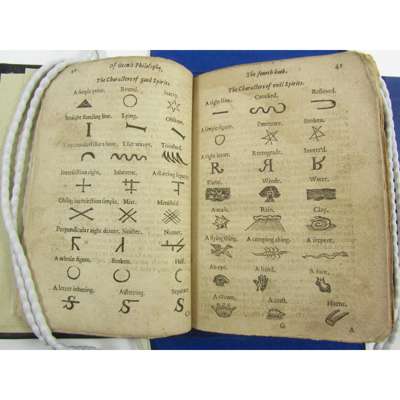 Of Occult Philosophy,
The Characters of good Spirits.
A simple point. Round. Starry.
Straight standing line. Lying. Oblique.
Line crooked like a bow. Like waves. Toothed.
Intersection right. Inherent. Adhering separate.
Obliq; intersection simple. Mixt. Manifold.
Perpendicular right dexter. Neuter.
A whole figure. Broken. Half.
A letter inhering. Adhering. Separate.
The fourth book. 41
The Characters of evil Spirits.
A right line. Crooked. Reflexed.
A simple figure. Penetrate. Broken.
A right letter. Retrograde. Invers'd.
Flame. Winde. Water.
A mass. Rain. Clay.
A flying thing. A creeping thing. A serpent.
An eye. A hand. A foot.
A crown. A crest. Horns.
G